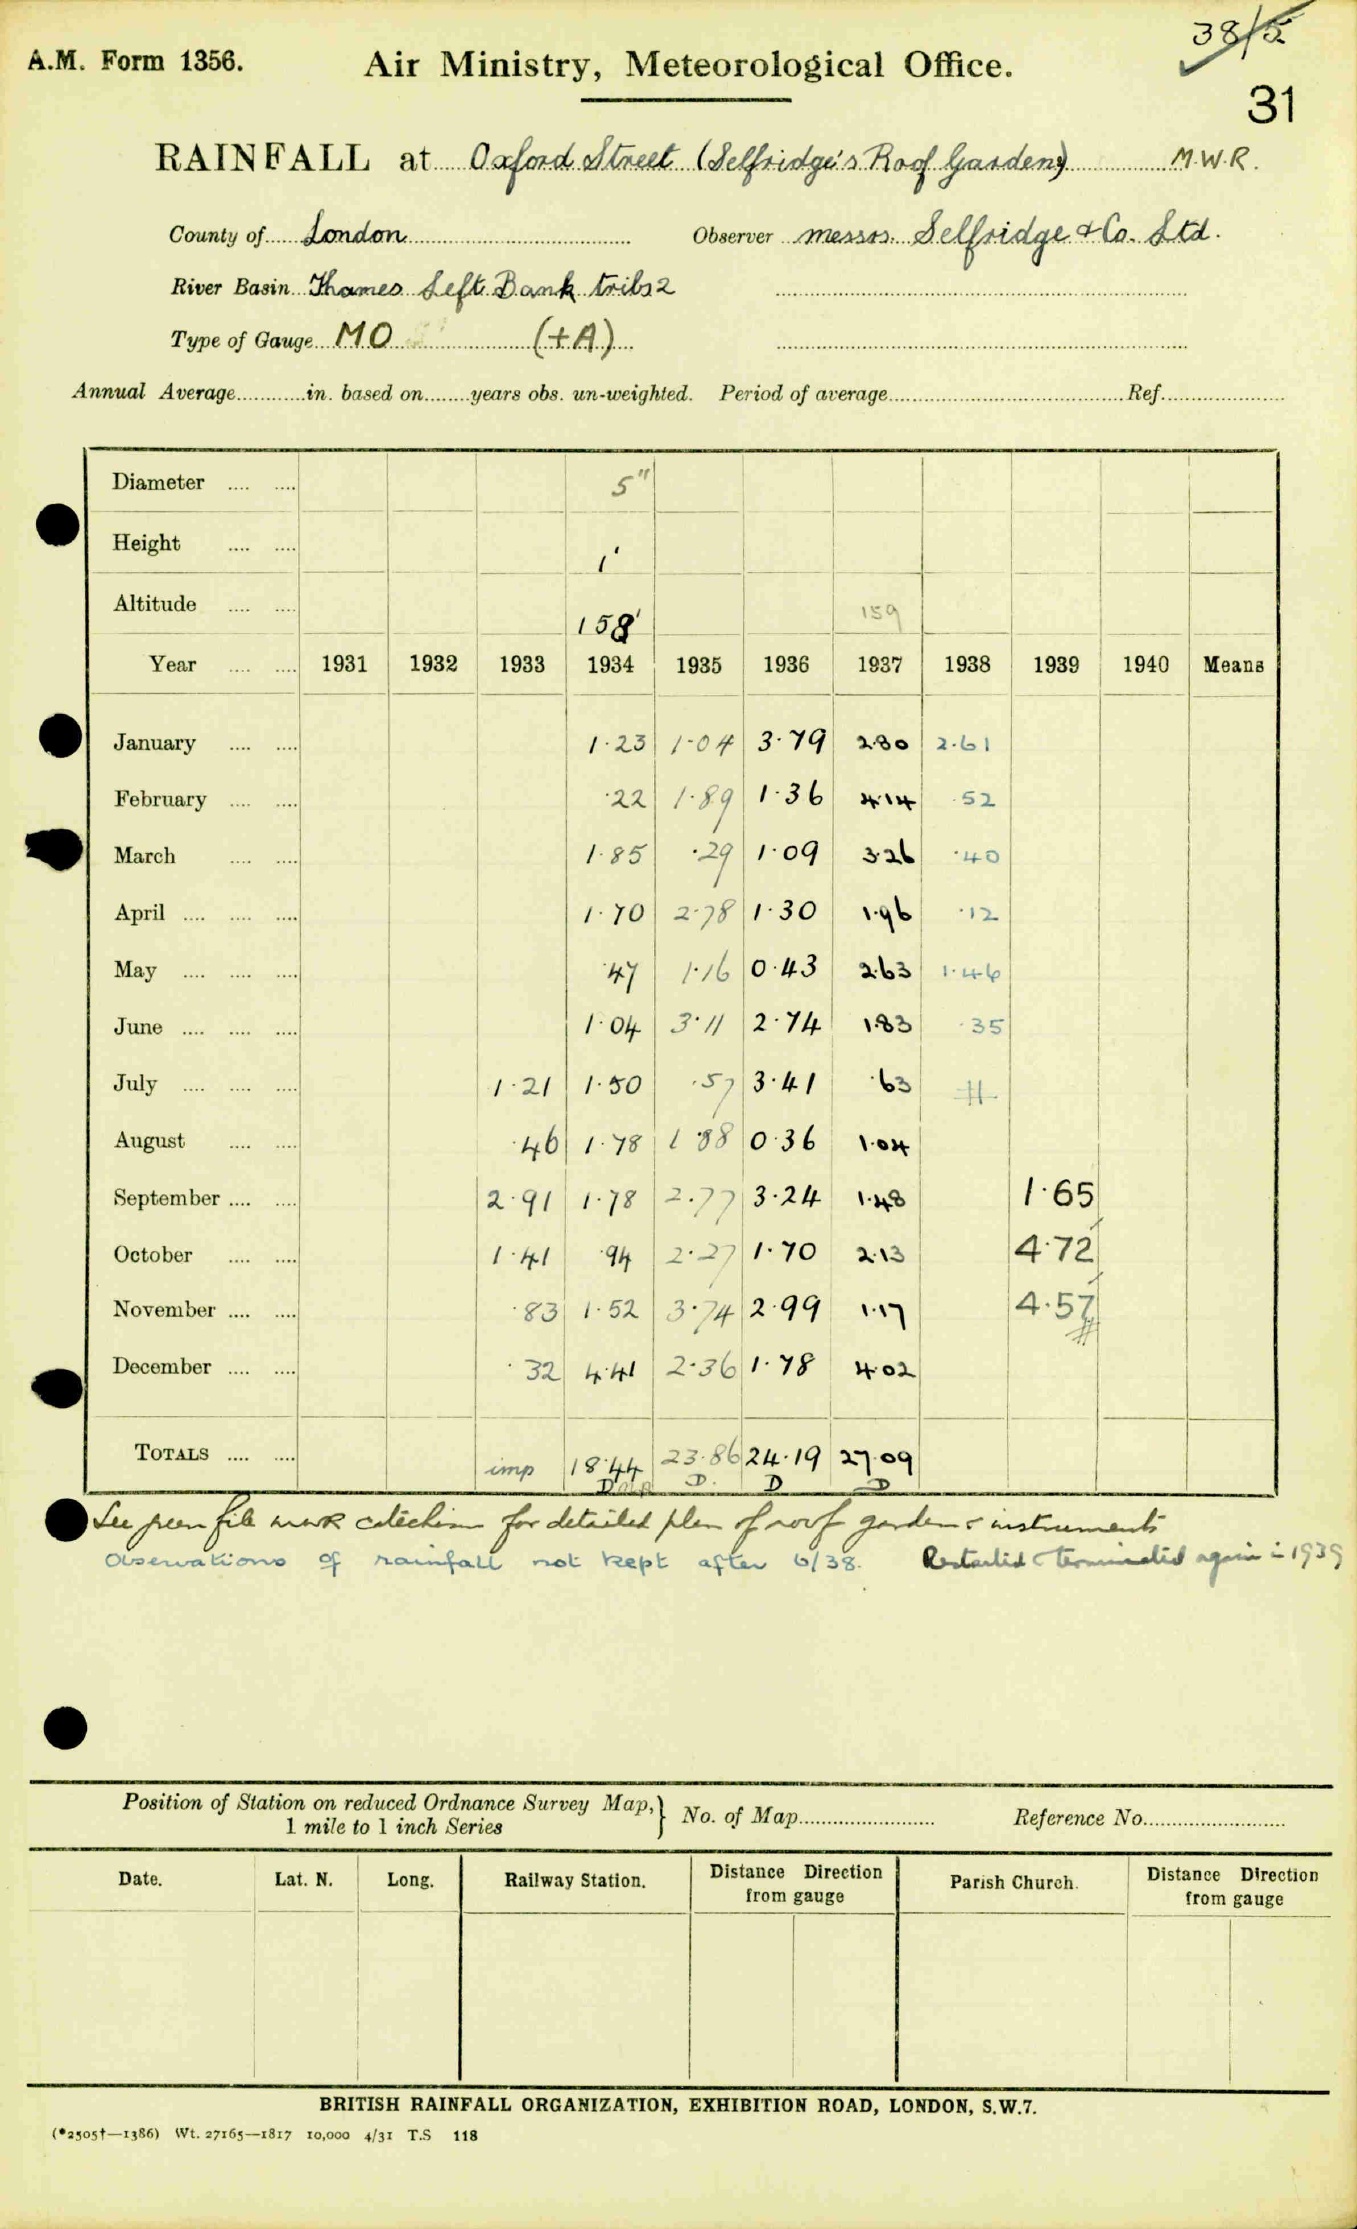 38/5
A.M. Form 1356. Air Ministry, Meteorological Office.
31
RAINFALL at Oxford Street (Selfridge's Roof Gardens) M.W.R.
County of London Observer Messrs. Selfridge & Co. Ltd.
River Basin Thames Left Bank tribs 2
Type of Gauge MO (+A)
Annual Average in. based on years obs. un-weighted. Period of average Ref.
Diameter 5"
Height 1'
Altitude 158' 159
Year 1931 1932 1933 1934 1935 1936 1937 1938 1939 1940 Means
January 1.23 1.04 3.79 2.80 2.61
February .22 1.89 1.36 4.14 .52
March 1.85 .29 1.09 3.26 .40
April 1.70 2.78 1.30 1.96 .12
May .47 1.16 0.43 2.63 1.46
June 1.04 3.11 2.74 1.83 .35
July 1.21 1.50 .57 3.41 .63
August .46 1.78 1.88 0.36 1.04
September 2.91 1.78 2.77 3.24 1.48 1.65
October 1.41 .94 2.27 1.70 2.13 4.72
November .83 1.52 3.74 2.99 1.17 4.57
December .32 4.41 2.36 1.78 4.02
TOTALS imp 18.44 23.86 24.19 27.09
D D. D D
See green file mark catechism for detailed plan of roof gardens & instruments
Observations of rainfall not kept after 6/38. Restarted & terminated again in 1939
Position of Station on reduced Ordnance Survey Map, } No. of Map Reference No.
1 mile to 1 inch Series
Date. Lat. N. Long. Railway Station. Distance Direction from gauge Parish Church. Distance Direction from gauge
BRITISH RAINFALL ORGANIZATION, EXHIBITION ROAD, LONDON, S.W.7.
(*2505†—1386) Wt. 27165—1817 10,000 4/31 T.S 118